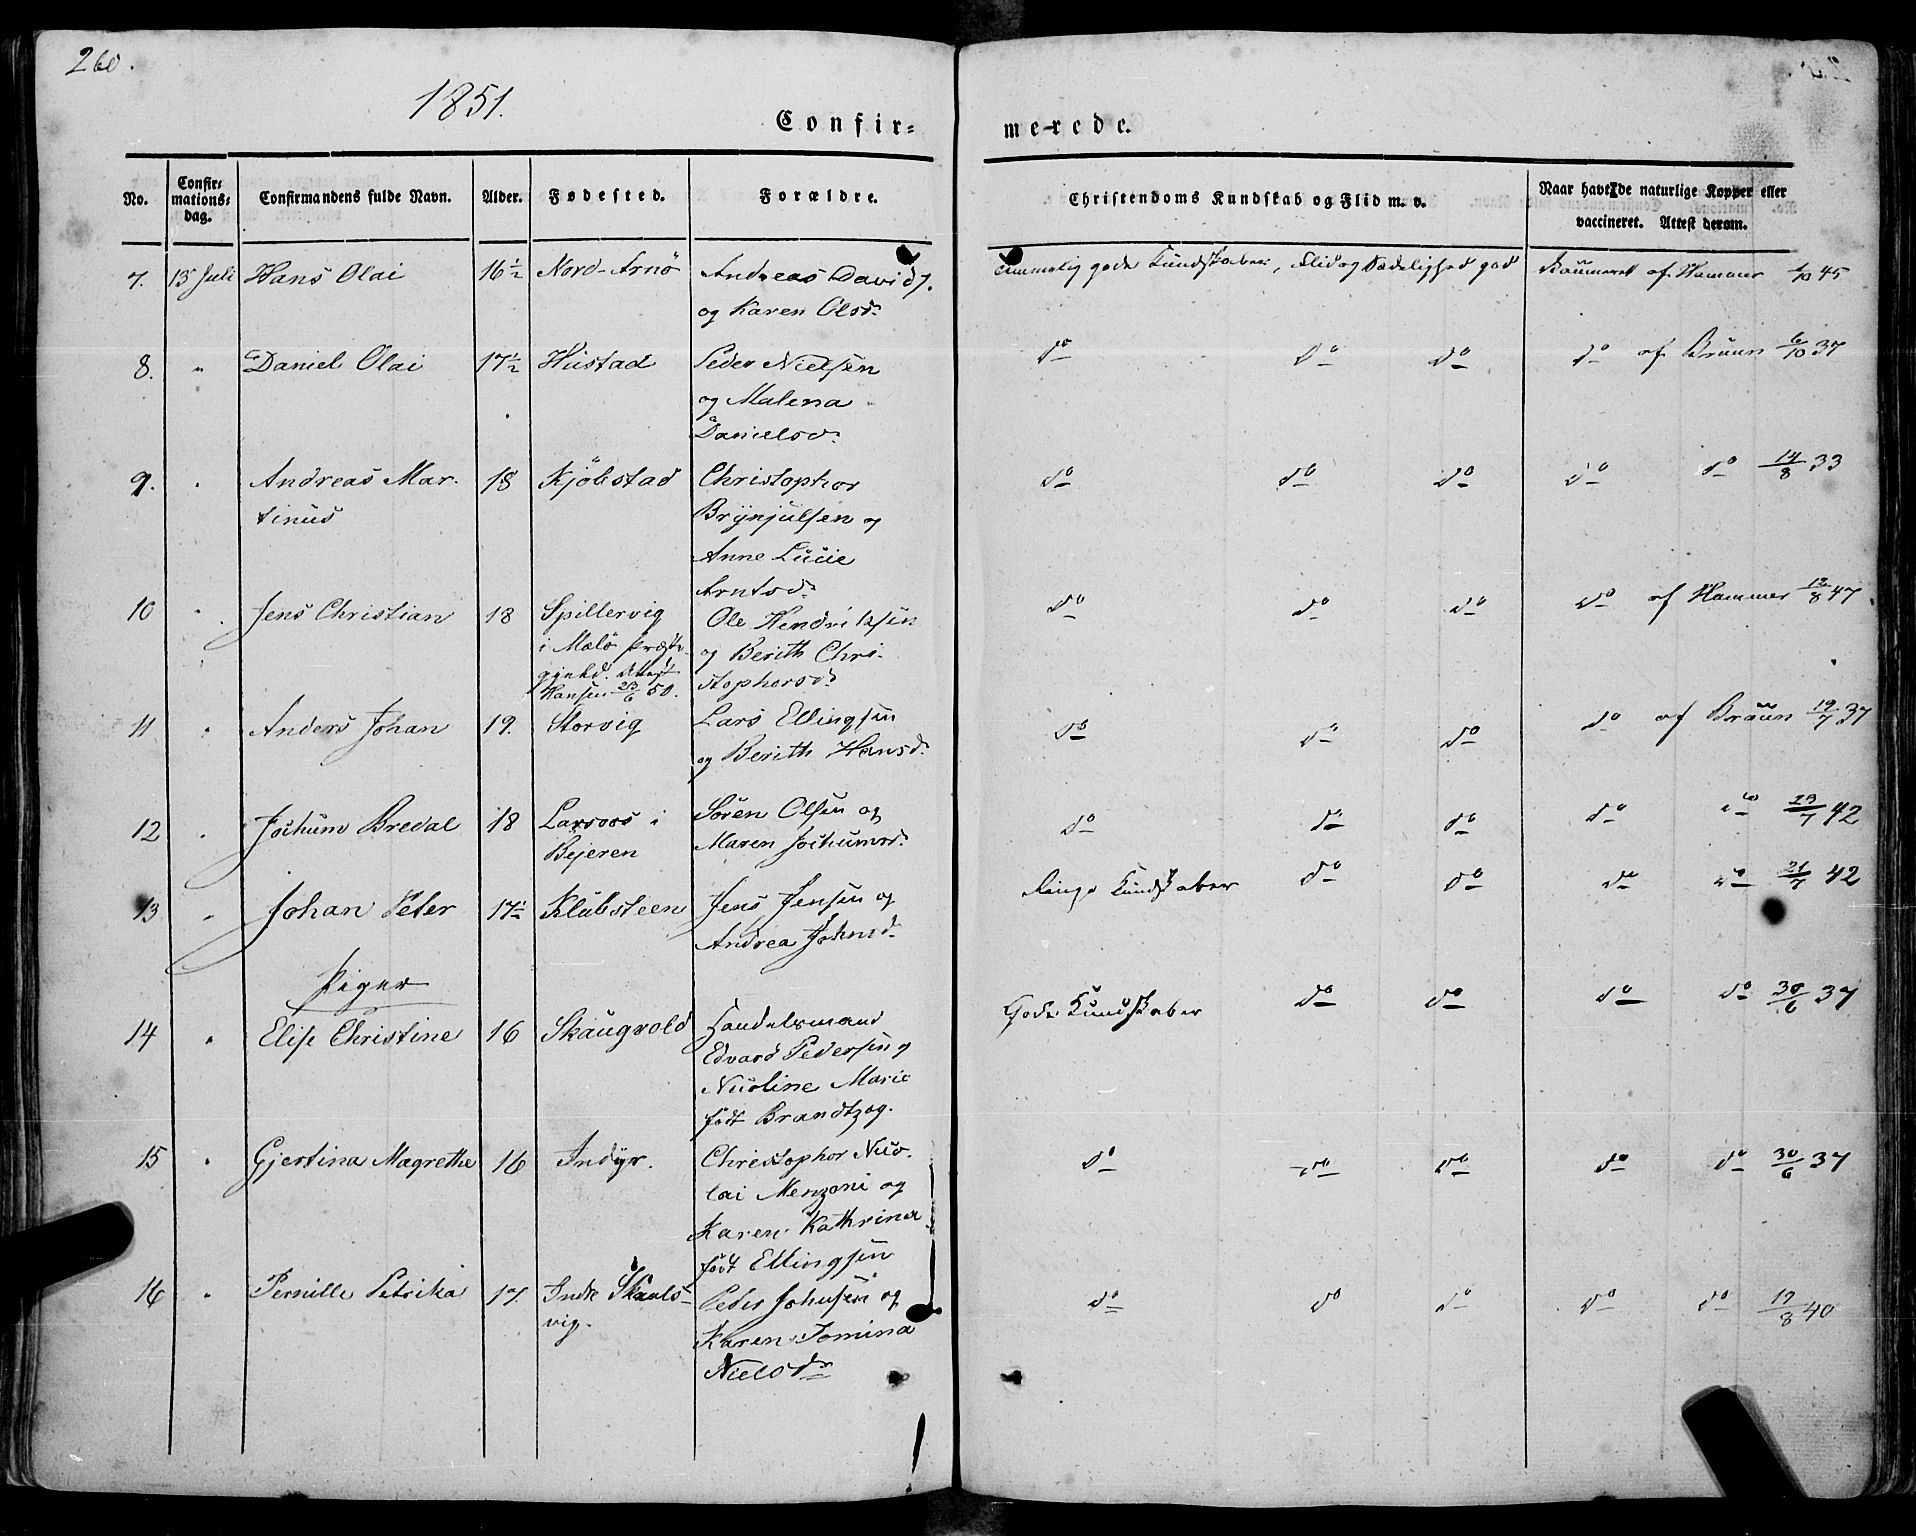 260.
1851.
Confir=
merede.
No. Confir=mations=dag. Confirmandens fulde Navn. Alder. Fødested. Forældre. Christendoms Kundskab og Flid m. v. Naar havt de naturlige Kopper eller vaccineret. Attest derom.
7. 13 Juli Hans Olai 16½ Nord-Arnö Andreas Davids.
og Karen Olsd.
temmelig gode Kundskaber, Flid og Sædelighed god af Hammer 45
8. " Daniel Olai 17½ Hustad Peder Nielsen
og Malena
Danielsd.
do do do do af Bruun 6/10 37
9. " Andreas Mar- 18 Kjöbstad Christopher
tinus Brynjulsen og
Anne Lucie
Arntsd.
do do do do do 14/8 33
10 " Jens Christian 18 Spillervig Ole Hendriksen
i Melö Præste- og Berith Chri-
gjeld. Attest stophersd.
Hansen 23/6 50.
do do do do af Hammer 12/8 47.
11 " Anders Johan 19. Storvig Lars Ellingsen
og Berith Hansd.
do do do do af Bruun 19/7 37
12 " Jochum Bredal 18 Larsos i Sören Olsen og
Bejeren Maren Jochumsd.
do do do do do 23/7 42
13 " Johan Peter 17½ Klubsteen Jens Jensen og
Andrea Johnsd.
Ringe Kundskaber do do do do 21/7 42
Piger
14 " Elise Christine 16 Skaugvold Handelsmand
Edvard Pedersen og
Nicoline Marie
födt Brandtzog.
Gode Kundskaber do do do do 30/6 37
15 " Gjertina Magrethe 16 Indyr. Christopher Nico-
lai Menzoni og
Karen Kathrina
födt Ellingsen
do do do do do 30/6 37
16 " Pernille Petrika 17. Indre Skauls- Peder Johnsen og
vig. Karen Tomina
Nielsdr
do do do do do 19/8 40